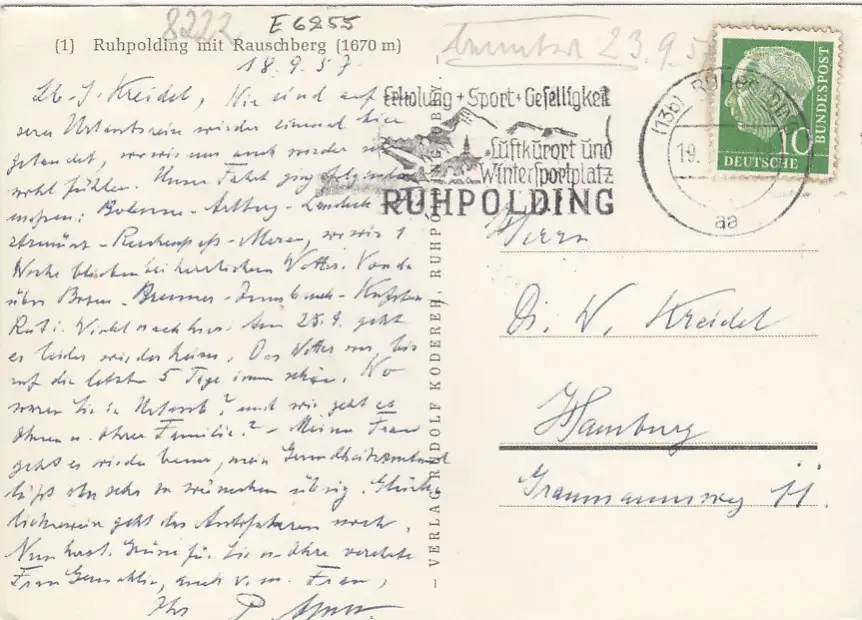 8222
E 6855
(1) Ruhpolding mit Rauschberg (1670 m)
18.9.57
Kreidel, Wir sind auf un-
serer Urlaubsreise wieder einmal hier
gelandet, wo wir uns auch wieder
wohl fühlen. Unsere Fahrt ging
Arlberg - Landeck
Reschenpaß - Meran, wo wir 1
Woche blieben bei herrlichem Wetter. Von da
über Bozen - Brenner - Innsbruck - Kufstein
nach hier. Am 25.9. geht
es leider wieder heim. Das Wetter war bis
auf die letzten 5 Tage immer schön. Wo
waren Sie in Urlaub? und wie geht es
Ihnen u. Ihrer Familie? - Meiner Frau
geht es wieder besser, mein Gesundheitszustand
läßt sehr zu wünschen übrig. Glück-
licherweise geht das Autofahren noch.
Nun herzl. Grüße für Sie u. Ihre verehrte
Frau Gemahlin, auch v. m. Frau,
Ihr
- VERLAG RUDOLF KODERER, RUHPOLDING/OBB. -
23.9.5
Erholung + Sport + Geselligkeit
Luftkurort und
Wintersportplatz
RUHPOLDING
(13b) RUHPOLDING
19.
aa
10
DEUTSCHE
BUNDESPOST
Herrn
Di. W. Kreidel
Hamburg
Graumannsweg 11.